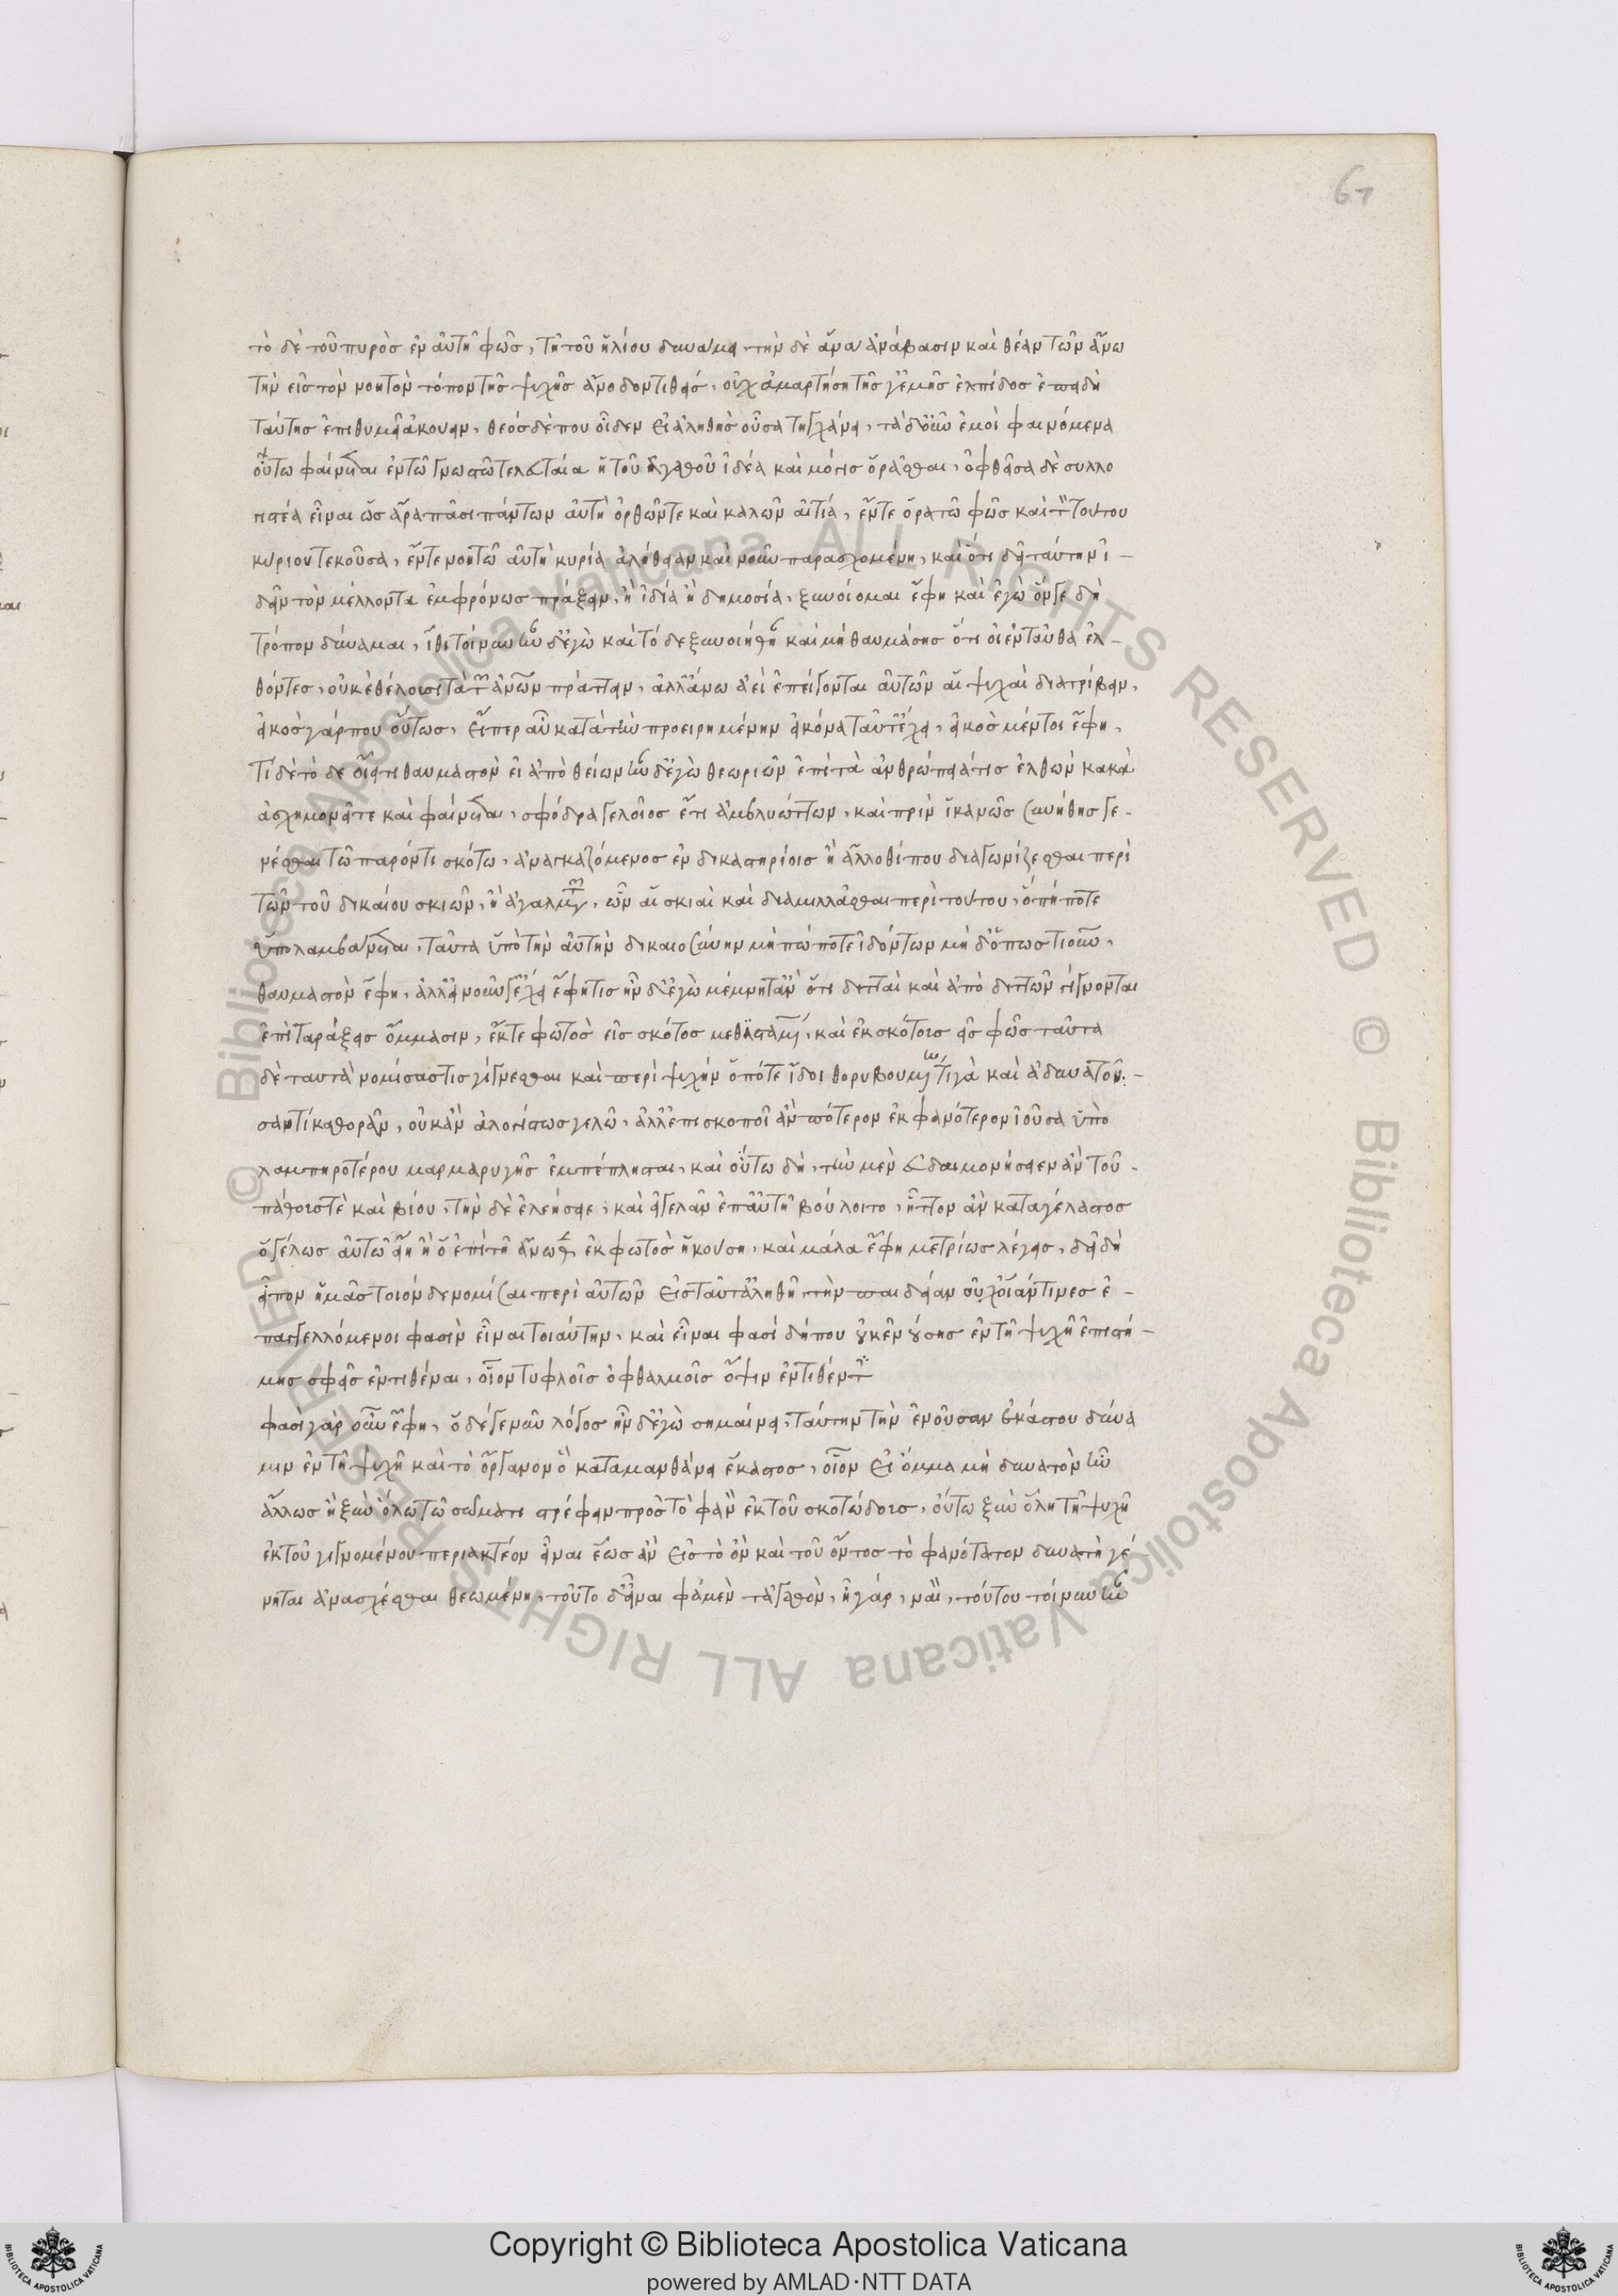 67
τὸ δὲ τοῦ πυρὸς ἐν αὐτῆ φῶς, τῆ τοῦ ἡλίου δυνάμει, τὴν δὲ ἄνω ἀνάβασιν καὶ θέαν τῶν ἄνω
τὴν εἰς τὸν νοητὸν τόπον τῆς ψυχῆς ἄνοδον τιθεὶς, οὐχ ἁμαρτήση τῆς γ' ἐμῆς ἐλπίδος ἐπειδὴ
ταύτης ἐπιθυμεῖ ἀκούειν, θεὸς δέ που οἶδεν εἰ ἀληθὴς οὖσα τυγχάνει, τὰ δ' οὖν ἐμοὶ φαινόμενα
οὕτω φαίνεται ἐν τῶ γνωστῶ τελευταία ἡ τοῦ ἀγαθοῦ ἰδέα καὶ μόγις ὁρᾶσθαι, ὀφθεῖσα δὲ συλλο
γιστέα εἶναι ὡς ἄρα πᾶσι πάντων αὐτὴ ὀρθῶν τε καὶ καλῶν αἰτία, ἔν τε ὁρατῶ φῶς καὶ τὸν τούτου
κύριον τεκοῦσα, ἔν τε νοητῶ αὐτὴ κυρία ἀλήθειαν καὶ νοῦν παρασχομένη, καὶ ὅτι δεῖ ταύτην ἰ-
δεῖν τὸν μέλλοντα ἐμφρόνως πράξειν, ἢ ἰδία ἢ δημοσία, ξυνοίομαι ἔφη καὶ ἐγὼ ὅν γε δὴ
τρόπον δύναμαι, ἴθι τοίνυν ἦν δ' ἐγὼ καὶ τόδε ξυνοιήθητι καὶ μὴ θαυμάσης ὅτι οἱ ἐνταῦθα ἐλ-
θόντες, οὐκ ἐθέλουσι τὰ τῶν ἀνῶν πράττειν, ἀλλ' ἄνω ἀεὶ ἐπείγονται αὐτῶν αἱ ψυχαὶ διατρίβειν,
εἰκὸς γάρ που οὕτως, εἴπερ αὖ κατὰ τὴν προειρημένην εἰκόνα ταῦτ' ἔχει, εἰκὸς μέντοι ἔφη,
Τί δὲ τόδε οἴει τι θαυμαστὸν εἰ ἀπὸ θείων ἦν δ' ἐγὼ θεωριῶν ἐπὶ τὰ ἀνθρώπειά τις ἐλθὼν κακὰ
ἀσχημονεῖ τε καὶ φαίνεται, σφόδρα γελοῖος ἔτι ἀμβλυώττων, καὶ πρὶν ἱκανῶς συνήθης γε-
νέσθαι τῶ παρόντι σκότω, ἀναγκαζόμενος ἐν δικαστηρίοις ἢ ἄλλοθί που διαγωνίζεσθαι περὶ
τῶν τοῦ δικαίου σκιῶν, ἢ ἀγαλμάτων, ὧν αἱ σκιαὶ καὶ διαμιλλᾶσθαι περὶ τούτου, ὅπη ποτὲ
ὑπολαμβάνεται, ταῦτα ὑπὸ τῶν αὐτὴν δικαιοσύνην μὴ πώποτε ἰδόντων μὴ δ' ὅπως τιοῦν,
θαυμαστὸν ἔφη, ἀλλ' εἰ νοῦν γ' ἔχει ἔφη τις ἦν δ' ἐγὼ μέμνητ' ἂν ὅτι διτταὶ καὶ ἀπὸ διττῶν γίγνονται
ἐπιταράξεις ὄμμασιν, ἔκ τε φωτὸς εἰς σκότος μεθισταμένων, καὶ ἐκ σκότους εἰς φῶς ταῦτα
δὲ ταυτὰ νομίσας τις γίγνεσθαι καὶ περὶ ψυχὴν ὁπότε ἴδοι θορυβουμένην τινὰ καὶ ἀδυνατοῦ-
σαν τί καθορᾶν, οὐκ ἂν ἀλογίστως γελῶ, ἀλλ' ἐπισκοποῖ ἂν πότερον ἐκ φανότερον ἰοῦσα ὑπὸ
λαμπηροτέρου μαρμαρυγῆς ἐμπέπλησται, καὶ οὕτω δὴ, τὴν μὲν εὐδαιμονήσειεν ἂν τοῦ
πάθους τὲ καὶ βίου, τὴν δὲ ἐλεήσειε, καὶ εἰ γελᾶν ἐπ' αὐτῆ βούλοιτο, ἧττον ἂν καταγέλαστος
ὁ γέλως αὐτῶ εἴη ἢ ὁ ἐπὶ τῆ ἄνωθεν ἐκ φωτὸς ἡκούση, καὶ μάλα ἔφη μετρίως λέγεις, δεῖ δὴ
εἶπον ἡμᾶς τοιόνδε νομίσαι περὶ αὐτῶν εἰς ταῦτ' ἀληθῆ, τὴν παιδείαν οὐχ οἵαν τινὲς ἐ-
παγγελλόμενοι φασὶν εἶναι τοιαύτην, καὶ εἶναι φασί δήπου οὐκ ἐνούσης ἐν τῆ ψυχῆ ἐπιστή-
μης σφεῖς ἐντιθέναι, οἷον τυφλοῖς ὀφθαλμοῖς ὄψιν ἐντιθέντες
φασὶ γὰρ οὖν ἔφη, ὁ δέ γε νῦν λόγος ἦν δ' ἐγὼ σημαίνει, ταύτην τὴν ἐνοῦσαν ἑκάστου δύνα
μιν ἐν τῆ ψυχῆ καὶ τὸ ὄργανον ὃ καταμανθάνει ἕκαστος, οἷον εἰ ὄμμα μὴ δυνατὸν ἦν
ἄλλως ἢ ξὺν ὅλω τῶ σώματι στρέφειν πρὸς τὸ φανὸν ἐκ τοῦ σκοτώδους, οὕτω ξὺν ὅλη τῆ ψυχῆ
ἐκ τοῦ γιγνομένου περιακτέον εἶναι ἕως ἂν εἰς τὸ ὂν καὶ τοῦ ὄντος τὸ φανότατον δυνατὴ γέ
νηται ἀνασχέσθαι θεωμένη, τοῦτο δ' εἶναι φάμεν τἀγαθὸν, ἢ γάρ, ναί, τούτου τοίνυν ἦν
Copyright © Biblioteca Apostolica Vaticana
powered by AMLAD·NTT DATA